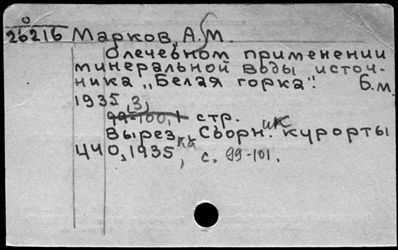 о
26216 Марков, А. М.
О лечебном применении
минеральной воды источ-
ника „Белая горка“. б.м.
1935, 3,
99-100, 1 стр.
Вырез. Сборн. ИК курорты
ЦЧО, 1935, с. 99-101.